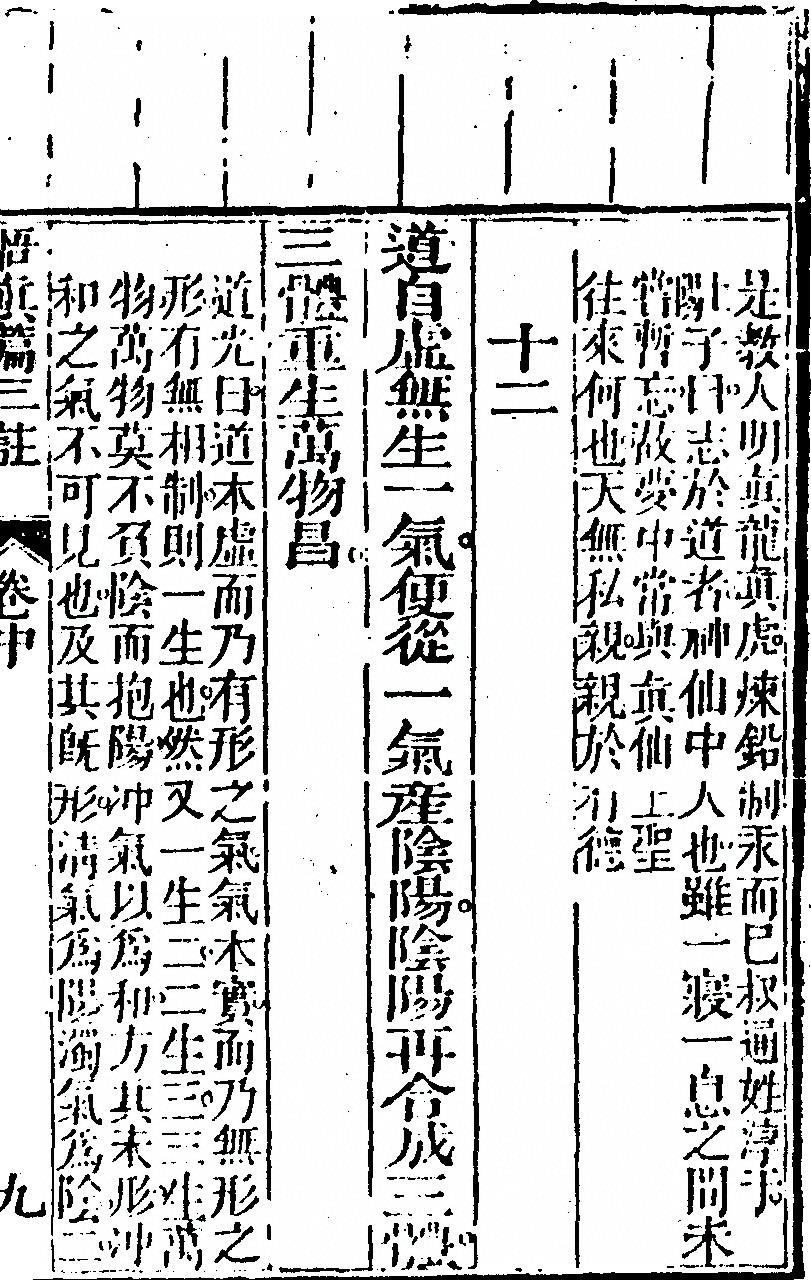 是教人明真龍真虎煉鉛制汞而已叔通姓淳于
子曰志於道者神仙中人也雖一寢一息之間未
嘗暫忘故夢中常與真仙上聖
往來何也天無私親親於有德
十二
道自虛無生一氣便從一氣產陰陽陰陽再合成三體
三體重生萬物昌
道光曰道本虛而乃有形之氣氣本實而乃無形之
形有無相制則一生也然又一生二二生三三生萬
物萬物莫不負陰而抱陽沖氣以為和方其未形沖
和之氣不可見也及其既形清氣為陽濁氣為陰二
悟真篇三註 卷中 九